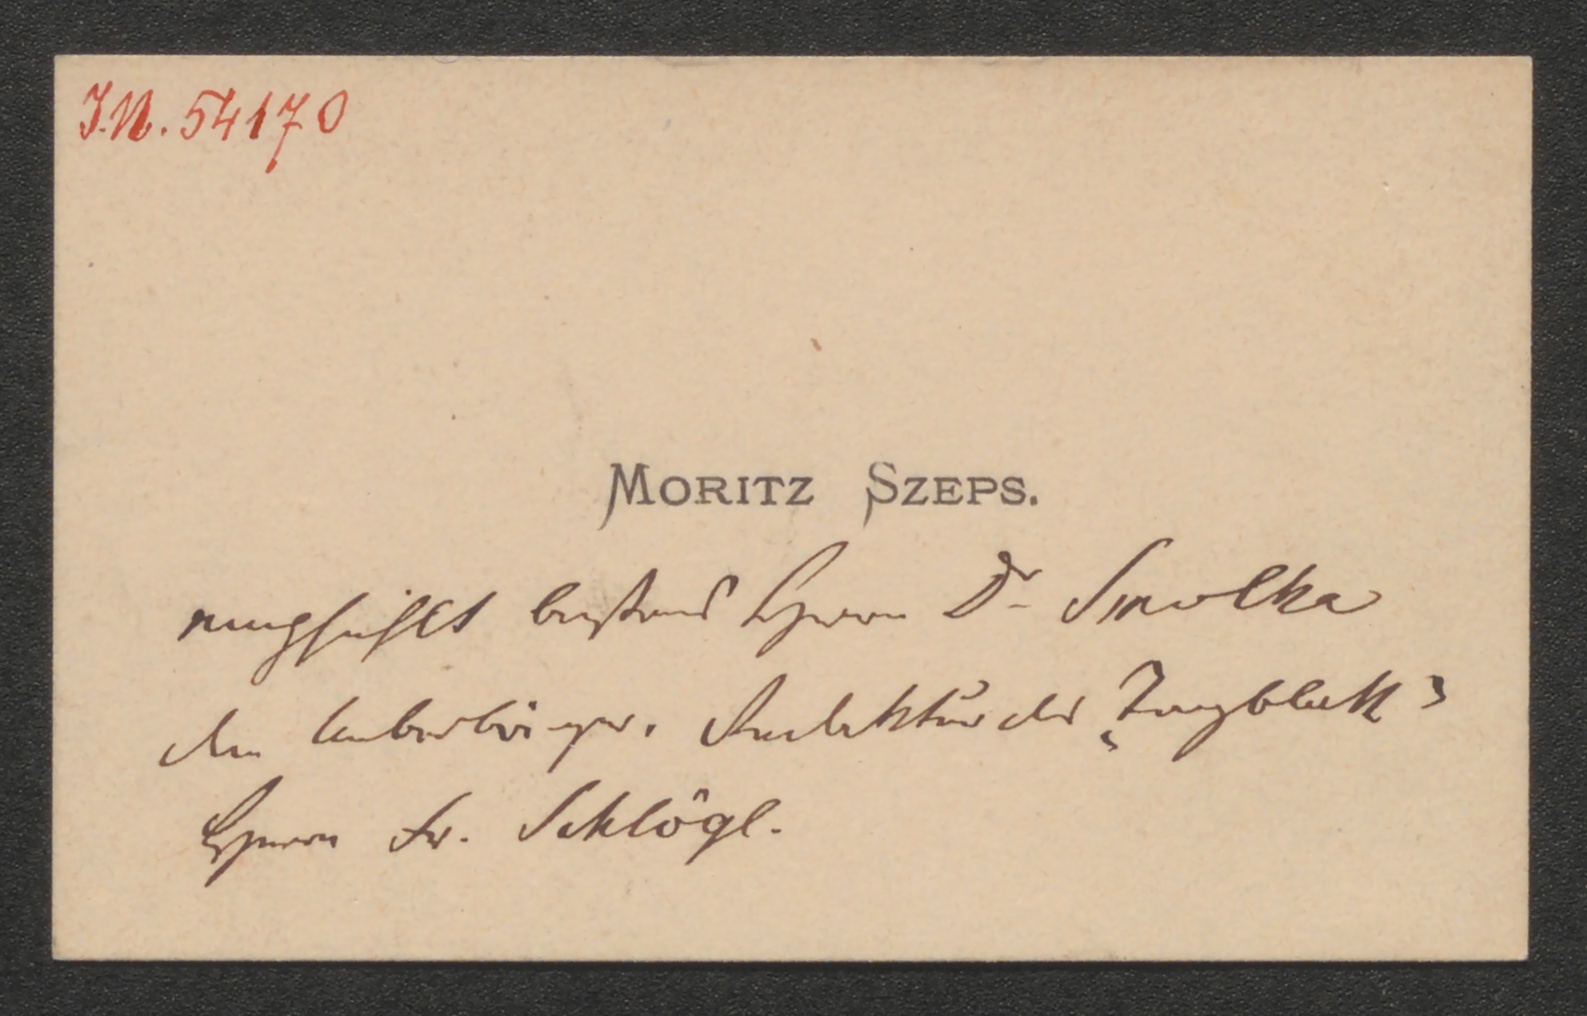 J.N. 54170
MORITZ SZEPS.
empfiehlt bestens Herrn Dr Smolka
den Ueberbringer. Redakteur des „Tagblatt“
Herrn Fr. Schlögl.